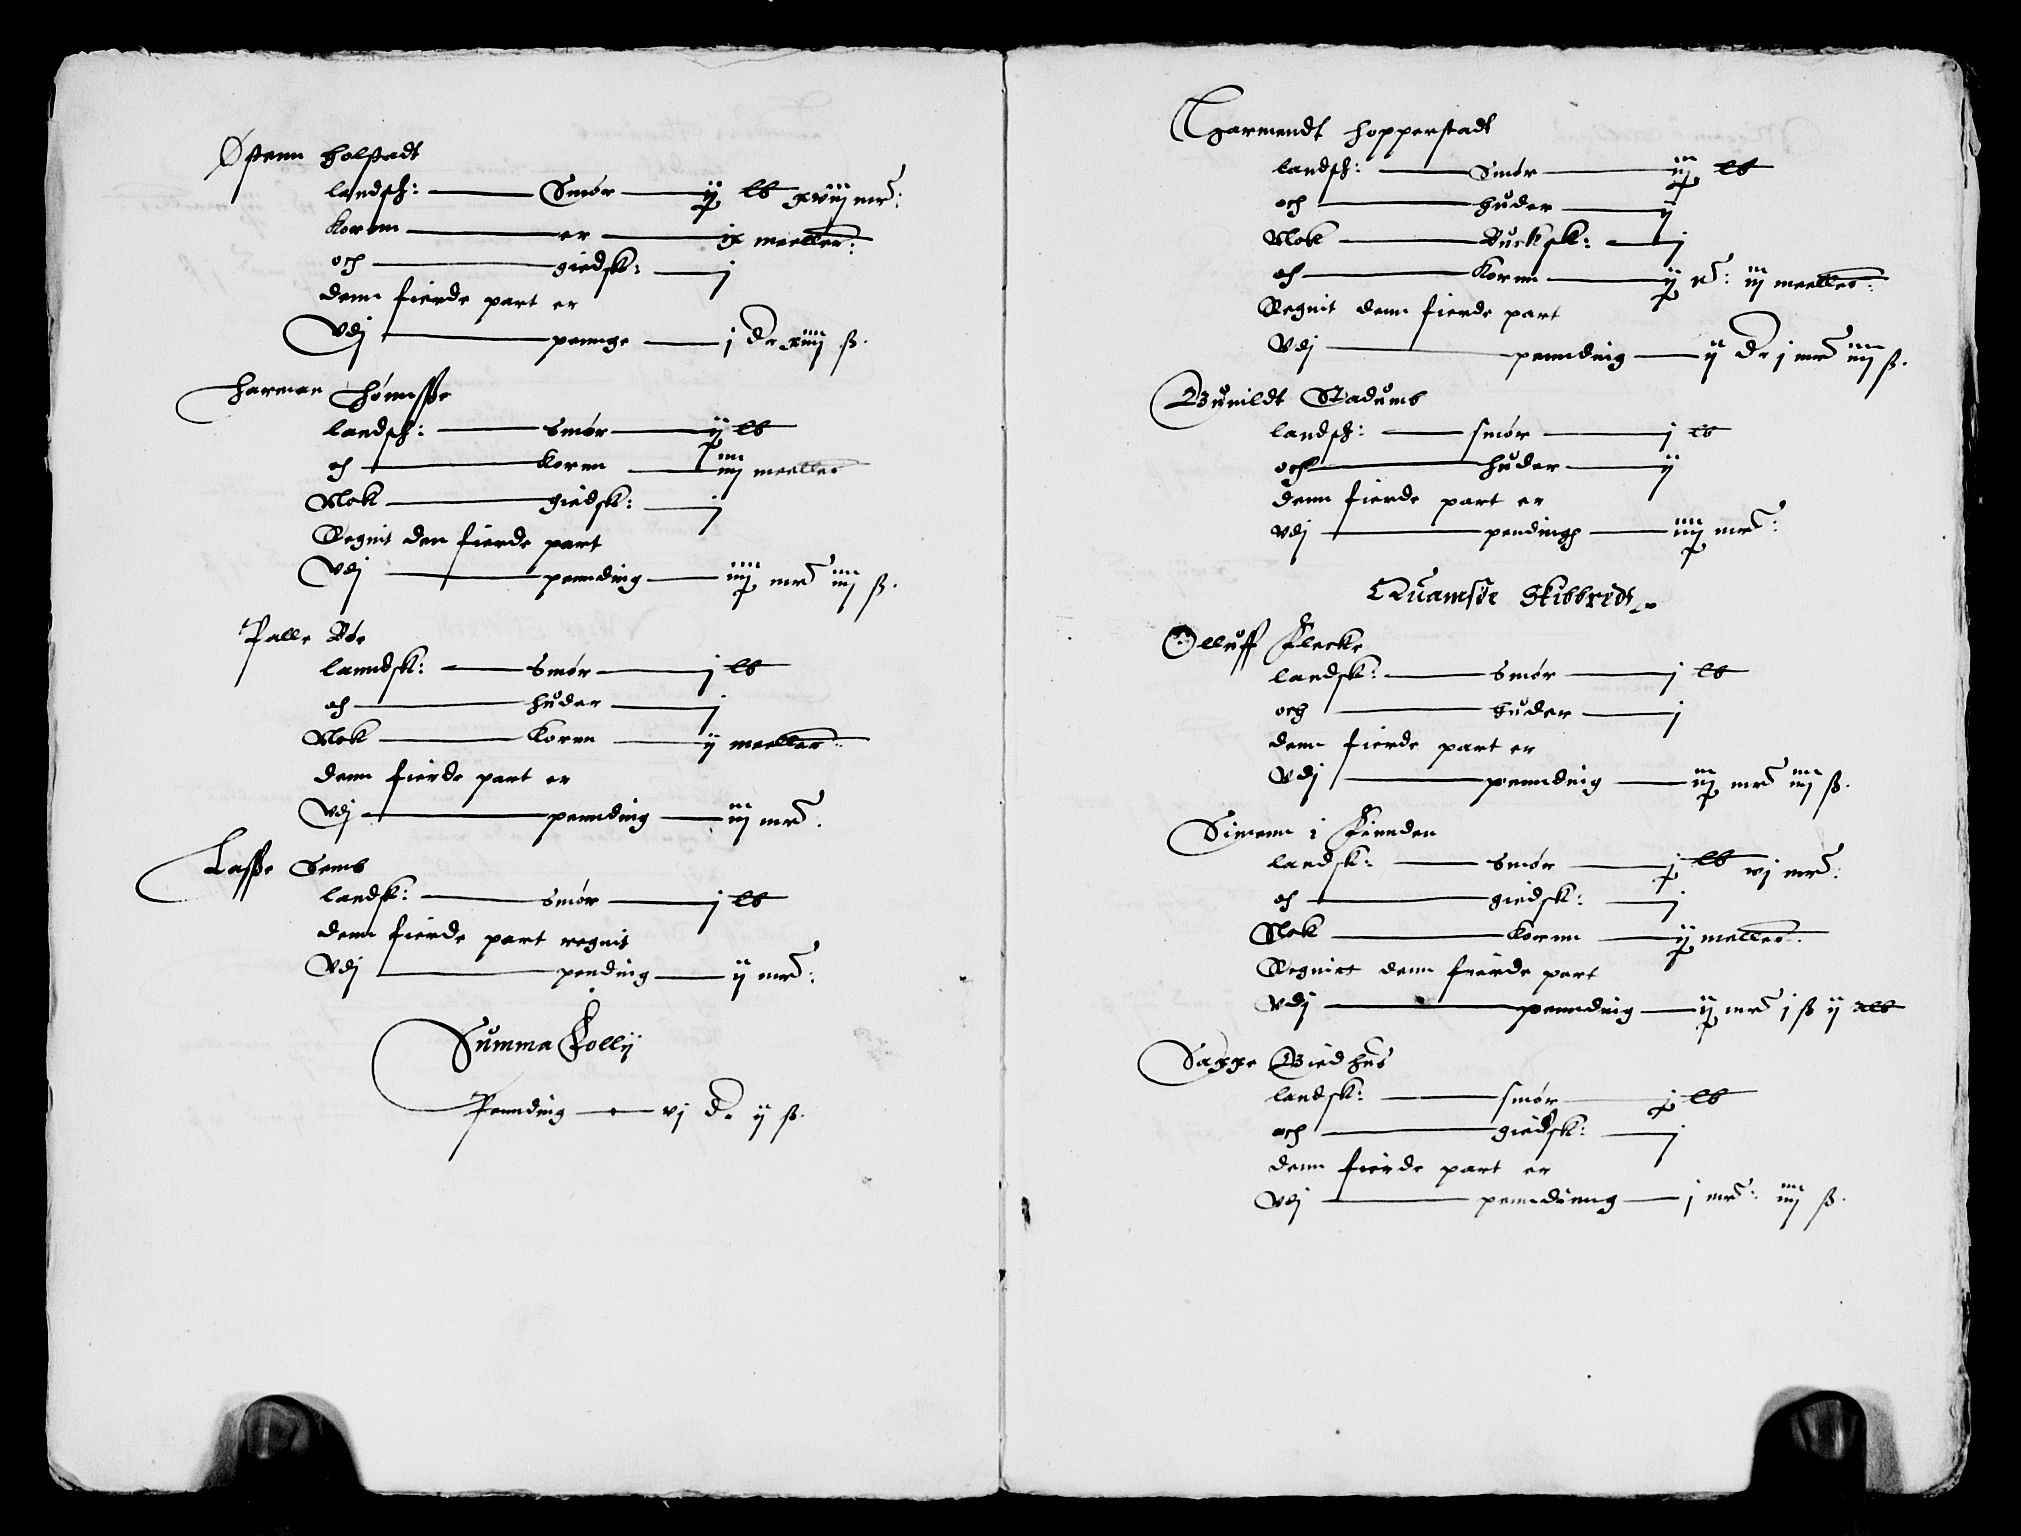 Østenn Holstadt
landsk: Smør ij lb xviij mr:
Kornn er ix meeller:
och giedsk: j
denn fierde part er
Vdj pennge j dr xiiij ß.
Harman Hønnsße
landsk: Smør ij lb
och Kornn iiij meeller
Nok giedsk: j
Regnit den fierde part
Vdj pennding iiij mr iiij ß.
Palle Bøe
lanndsk: Smør j lb
och huder j
Nok Kornn ij meeller:
denn fierde part er
Vdj pennding iij mr.
Lasße Semb
landsk: Smør j lb
denn fierde part regnit
Vdj pending ij mr:
Summa Follij
Pennding vj dr ij ß.
Garmendt Hopperstadt
landsk: Smør iij lb
och huder ij
Nok Bucksk: j
och Kornn ij meeller:
Regnit denn fierde part
Vdj penndeig ij dr j mr iiij ß.
Gunildt Stadumb
landsk: smør j lb
och huder ij
denn fierde part er
Vdj pendingh iiij mr:
Quamsøe Skibbrede
Olluff Flecke
landsk: Smør j lb
och huder j
denn fierde part er
Vdj pennding iij mr iiij ß.
Simenn i Finnden
landsk: Smør j lb vj mr:
och giedsk: j
Nok Kornn ij meller:
Regnitt denn fierde part
Vdj pennding ij mr j ß ij alb
Sagge Viedhus
landsk: smør j lb
och giedsk: j
denn fierde part er
Vdj penndinng j mr: iiij ß.